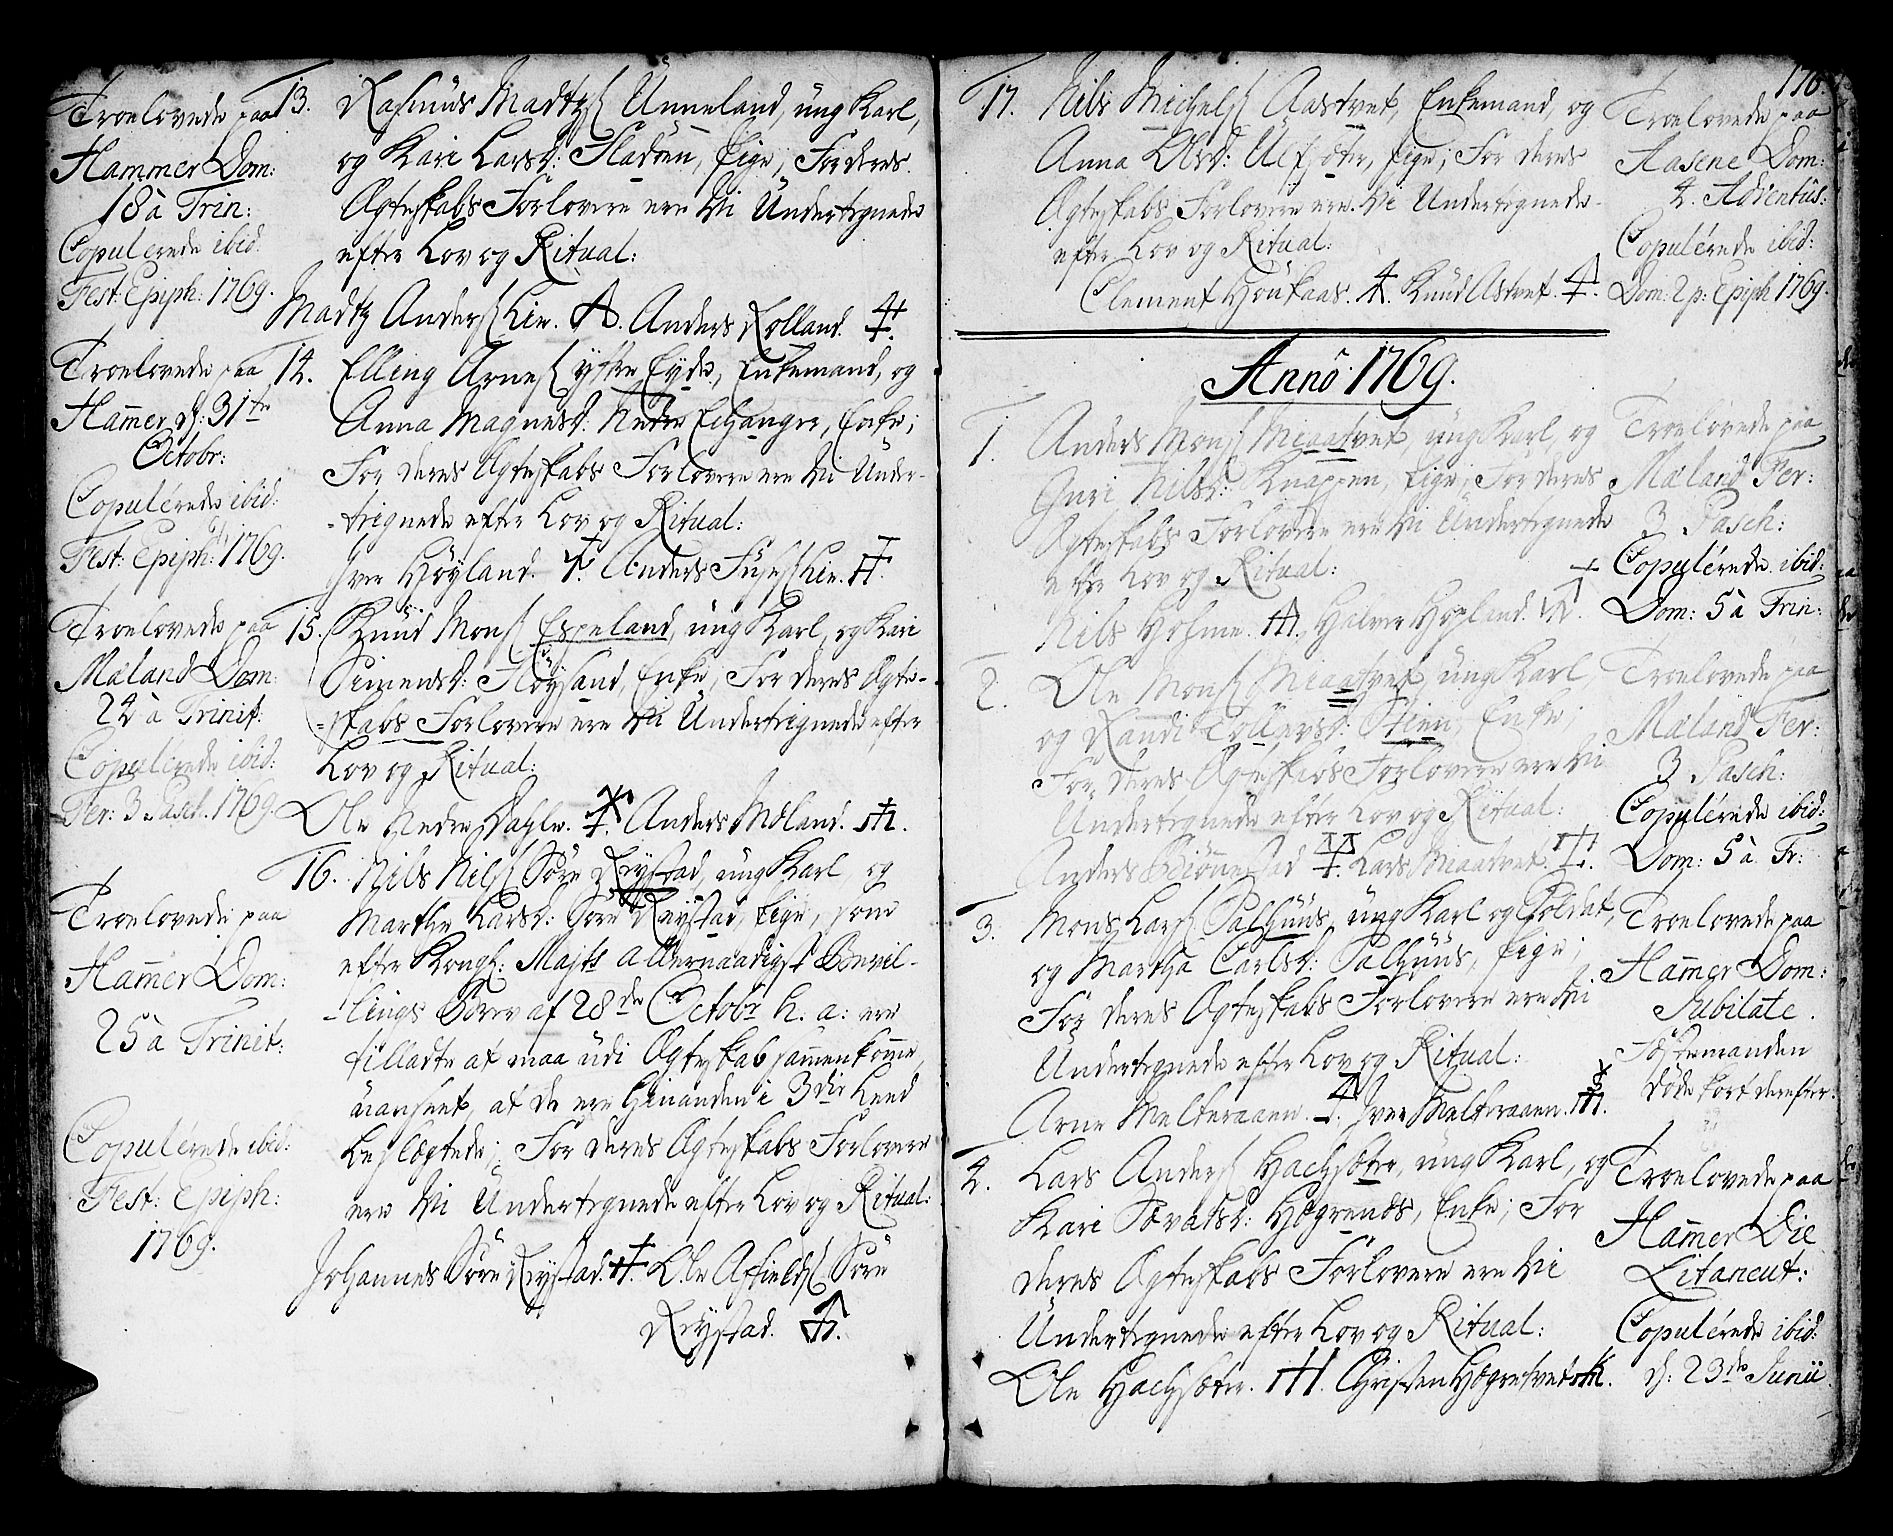 Troelovede paa
Hammer Dom:
18 à Trin:
Copulerede ibid:
Fest: Epiph: 1769.
13. Rasmus Madtzs. Unneland, ung Karl,
og Kari Larsd: Fladöen, Pige; For deres
Ægteskabs Forlovere ere Vi Undertegnede
efter Lov og Ritual:
Madtz Anders. Lie. Anders Rolland.
Troelovede paa
Ham̄er d: 31te
Octobr:
Copulérede ibid:
Fest: Epiph: 1769.
14. Elling Arnes. yttre Eyde, Enkemand, og
Anna Magnesd: Nedre Eichanger, Enke;
For deres Ægteskabs Forlovere ere Vi Under-
-tegnede efter Lov og Ritual:
Iver Höyland. Anders Fuses. Lie.
Troelovede paa
Mæland Dom:
24 à Trinit:
Copulérede ibid:
Fer: 3 Pasch. 1769.
15. Knud Mons. Espeland, ung Karl, og Kari
Simensd: Flöysand, Enke, For deres Ægte-
-skabs Forlovere ere Vi Undertegnede efter
Lov og Ritual:
Ole Nedre Dahle. Anders Möland.
Troelovede paa
Ham̄er Dom:
25 à Trinit:
Copulerede ibid:
Fest: Epiph:
1769.
16. Nils Nils. Söre Röystad, ung Karl, og
Marthe Larsd: Söre Röystad, Pige, som
efter Kongl: Majts allernaadigst Bevil-
-lings Brev af 28de Octobr h. a: ere
tilladte at maa udi Ægteskab sam̄enkom̄e
uanseet, at de ere hinanden i 3die Leed
beslægtede; For deres Ægteskabs Forlovere
ere Vi Undertegnede efter Lov og Ritual:
Johannes Söre Röystad. Ole Söre
Röystad.
176
17. Nils Michels. Aastvet, Enkemand, og
Anna Olsd: Ulfsæter, Pige; For deres
Ægteskabs Forlovere ere Vi Undertegnede
efter Lov og Ritual:
Clement Houkaas. Knud Astvet.
Troelovede paa
Aasene Dom:
4. Adventus:
Copulérede ibid:
Dom: 2 p: Epiph 1769.
Annô 1769.
1. Anders Mons. Miaatvet, ung Karl, og
Guri Nilsd: Knappen, Pige; For deres
Ægteskabs Forlovere ere Vi Undertegnede
efter Lov og Ritual:
Nils Hofme. Halvor Hopland.
Troelovede paa
Mæland Fer:
3 Pasch:
Copulérede ibid:
Dom: 5 à Trin:
2. Ole Mons. Miaatvet, ung Karl,
og Randi Stien, Enke;
For deres Ægteskabs Forlovere ere Vi
Undertegnede efter Lov og Ritual:
Anders Biönnestad. Lars Miaatvet.
Troelovede paa
Mæland Fer:
3 Pasch:
Copulérede ibid:
Dom: 5 à Tr:
3. Mons Lars. Salhuus, ung Karl og Soldat,
og Martha Carlsd: Salhuus, Pige;
For deres Ægteskabs Forlovere ere Vi
Undertegnede efter Lov og Ritual:
Arne Melteraaen. Iver Melteraaen.
Troelovede paa
Ham̄er Dom:
Jubilate.
Festemanden
döde kort derefter.
4. Lars Anders. Hachsæter, ung Karl, og
Kari Hogrends, Enke; For
deres Ægteskabs Forlovere ere Vi
Undertegnede efter Lov og Ritual:
Ole Hachsæter. Christen
Troelovede paa
Ham̄er Die
Litaneut:
Copulérede ibid:
d: 23de Junii